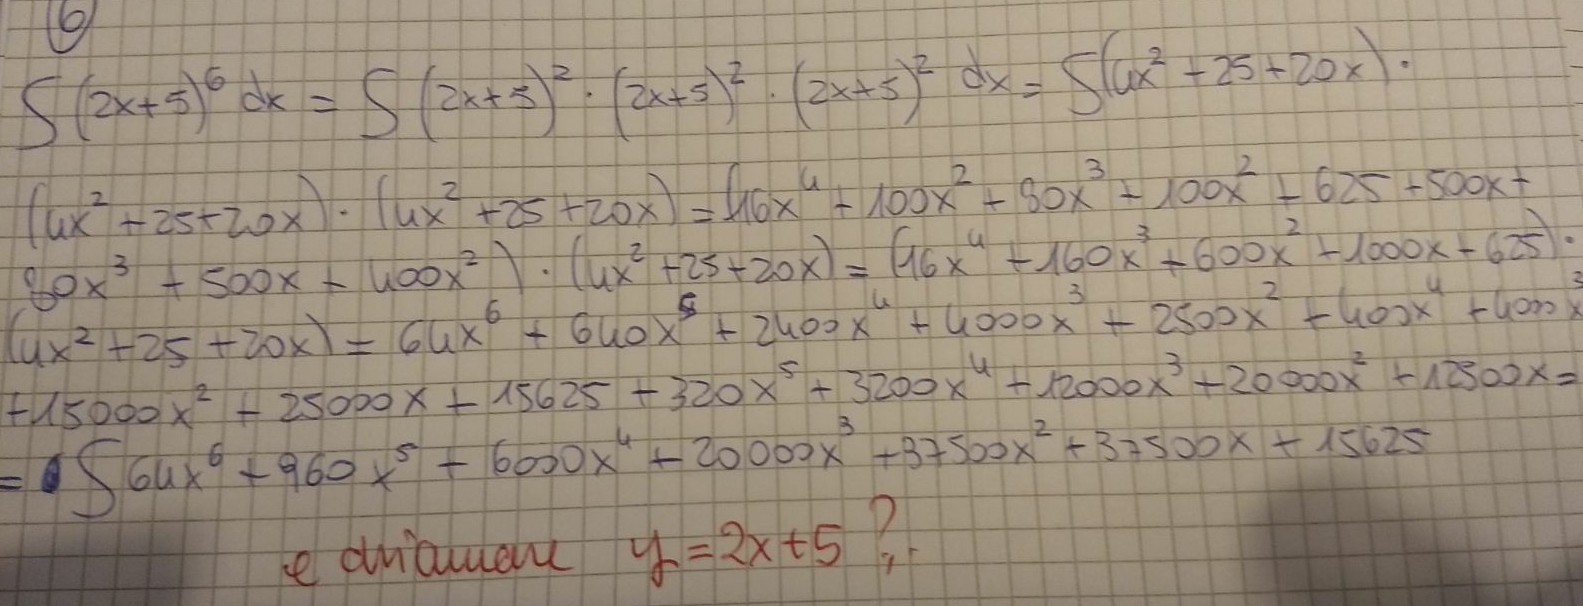 6
∫(2x+5)⁶ dx = ∫(2x+5)² · (2x+5)² · (2x+5)² dx = ∫(4x² + 25 + 20x) ·
(4x² + 25 + 20x) · (4x² + 25 + 20x) = (16x⁴ + 100x² + 80x³ + 100x² + 625 + 500x +
80x³ + 500x + 400x²) · (4x² + 25 + 20x) = (16x⁴ + 160x³ + 600x² + 1000x + 625) ·
(4x² + 25 + 20x) = 64x⁶ + 640x⁵ + 2400x⁴ + 4000x³ + 2500x² + 400x⁴ + 4000x³
+ 15000x² + 25000x + 15625 + 320x⁵ + 3200x⁴ + 12000x³ + 20000x² + 12500x =
= ∫64x⁶ + 960x⁵ + 6000x⁴ + 20000x³ + 37500x² + 37500x + 15625
e y = 2x+5 ?